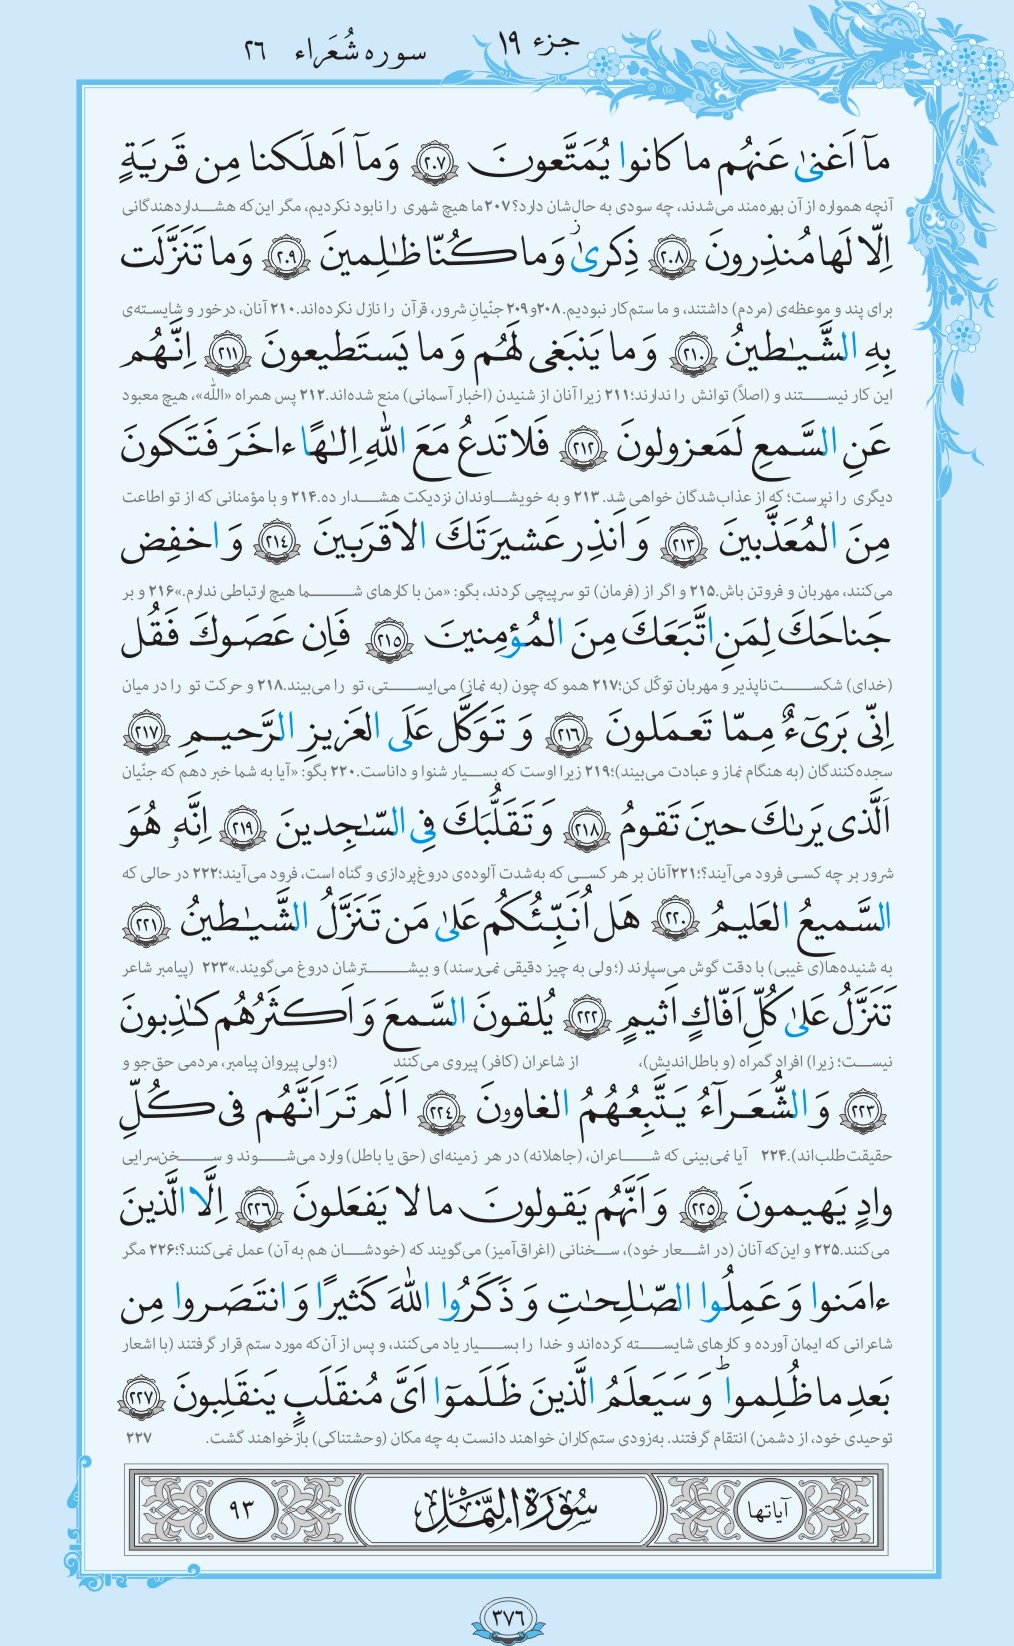 جزء ١٩
سوره شُعَراء ٢٦
مآ اَغنىٰ عَنهُم ما كانوا يُمَتَّعونَ ٢٠٧ وَمآ اَهلَكنا مِن قَريَةٍ
آنچه همواره از آن بهره‌مند می‌شدند، چه سودی به حال‌شان دارد؟۲۰۷ ما هیچ شهری را نابود نکردیم، مگر این‌که هشداردهندگانی
اِلّا لَها مُنذِرونَ ٢٠٨ ذِكرىٰ ۛ وَما كُنّا ظٰلِمينَ ٢٠٩ وَما تَنَزَّلَت
برای پند و موعظه‌ی (مردم) داشتند، و ما ستم‌کار نبودیم.۲۰۸و۲۰۹ جنّیانِ شرور، قرآن را نازل نکرده‌اند.۲۱۰ آنان، درخور و شایسته‌ی
بِهِ الشَّيٰطينُ ٢١٠ وَما يَنبَغى لَهُم وَما يَستَطيعونَ ٢١١ اِنَّهُم
این کار نیستند و (اصلاً) توانش را ندارند؛۲۱۱ زیرا آنان از شنیدن (اخبار آسمانی) منع شده‌اند.۲۱۲ پس همراه «اللّه»، هیچ معبود
عَنِ السَّمعِ لَمَعزولونَ ٢١٢ فَلا تَدعُ مَعَ اللّٰهِ اِلٰهًا ءاخَرَ فَتَكونَ
دیگری را نپرست؛ که از عذاب‌شدگان خواهی شد. ۲۱۳ و به خویشاوندان نزدیکت هشدار ده.۲۱۴ و با مؤمنانی که از تو اطاعت
مِنَ المُعَذَّبينَ ٢١٣ وَ اَنذِر عَشيرَتَكَ الاَقرَبينَ ٢١٤ وَ اخفِض
می‌کنند، مهربان و فروتن باش.۲۱۵ و اگر از (فرمان) تو سرپیچی کردند، بگو: «من با کارهای شما هیچ ارتباطی ندارم.»۲۱۶ و بر
جَناحَكَ لِمَنِ اتَّبَعَكَ مِنَ المُؤمِنينَ ٢١٥ فَاِن عَصَوكَ فَقُل
(خدای) شکست‌ناپذیر و مهربان توکّل کن؛۲۱۷ همو که چون (به نماز) می‌ایستی، تو را می‌بیند.۲۱۸ و حرکت تو را در میان
اِنّى بَرىٓءٌ مِمّا تَعمَلونَ ٢١٦ وَ تَوَكَّل عَلَى العَزيزِ الرَّحيمِ ٢١٧
سجده‌کنندگان (به هنگام نماز و عبادت می‌بیند)؛۲۱۹ زیرا اوست که بسیار شنوا و داناست.۲۲۰ بگو: «آیا به شما خبر دهم که جنّیان
اَلَّذى يَرىٰكَ حينَ تَقومُ ٢١٨ وَ تَقَلُّبَكَ فِى السّٰجِدينَ ٢١٩ اِنَّهو هُوَ
شرور بر چه کسی فرود می‌آیند؟؛۲۲۱آنان بر هر کسی که به‌شدت آلوده‌ی دروغ‌پردازی و گناه است، فرود می‌آیند؛۲۲۲ در حالی که
السَّميعُ العَليمُ ٢٢٠ هَل اُنَبِّئُكُم عَلىٰ مَن تَنَزَّلُ الشَّيٰطينُ ٢٢١
به شنیده‌ها(ی غیبی) با دقت گوش می‌سپارند (؛ولی به چیز دقیقی نمی‌رسند) و بیشترشان دروغ می‌گویند.»۲۲۳ (پیامبر شاعر
تَنَزَّلُ عَلىٰ كُلِّ اَفّاكٍ اَثيمٍ ٢٢٢ يُلقونَ السَّمعَ وَ اَكثَرُهُم كٰذِبونَ
نیست؛ زیرا) افرادِ گمراه (و باطل‌اندیش)، از شاعران (کافر) پیروی می‌کنند (؛ولی پیروان پیامبر، مردمی حق‌جو و
٢٢٣ وَ الشُّعَرآءُ يَتَّبِعُهُمُ الغاوونَ ٢٢٤ اَلَم تَرَ اَنَّهُم فى كُلِّ
حقیقت‌طلب‌اند).۲۲۴ آیا نمی‌بینی که شاعران، (جاهلانه) در هر زمینه‌ای (حق یا باطل) وارد می‌شوند و سخن‌سرایی
وادٍ يَهيمونَ ٢٢٥ وَ اَنَّهُم يَقولونَ ما لا يَفعَلونَ ٢٢٦ اِلَّا الَّذينَ
می‌کنند.۲۲۵ و این‌که آنان (در اشعار خود)، سخنانی (اغراق‌آمیز) می‌گویند که (خودشان هم به آن) عمل نمی‌کنند؟؛۲۲۶ مگر
ءامَنوا وَ عَمِلُوا الصّٰلِحٰتِ وَ ذَكَرُوا اللّٰهَ كَثيرًا وَ انتَصَروا مِن
شاعرانی که ایمان آورده و کارهای شایسته کرده‌اند و خدا را بسیار یاد می‌کنند، و پس از آن‌که مورد ستم قرار گرفتند (با اشعار
بَعدِ ما ظُلِموا ؕ وَ سَيَعلَمُ الَّذينَ ظَلَموٓا اَىَّ مُنقَلَبٍ يَنقَلِبونَ ٢٢٧
توحیدی خود، از دشمن) انتقام گرفتند. به‌زودی ستم‌کاران خواهند دانست به چه مکان (وحشتناکی) بازخواهند گشت. ۲۲۷
آیاتها سُورَةُ النَّمل ٩٣
٣٧٦